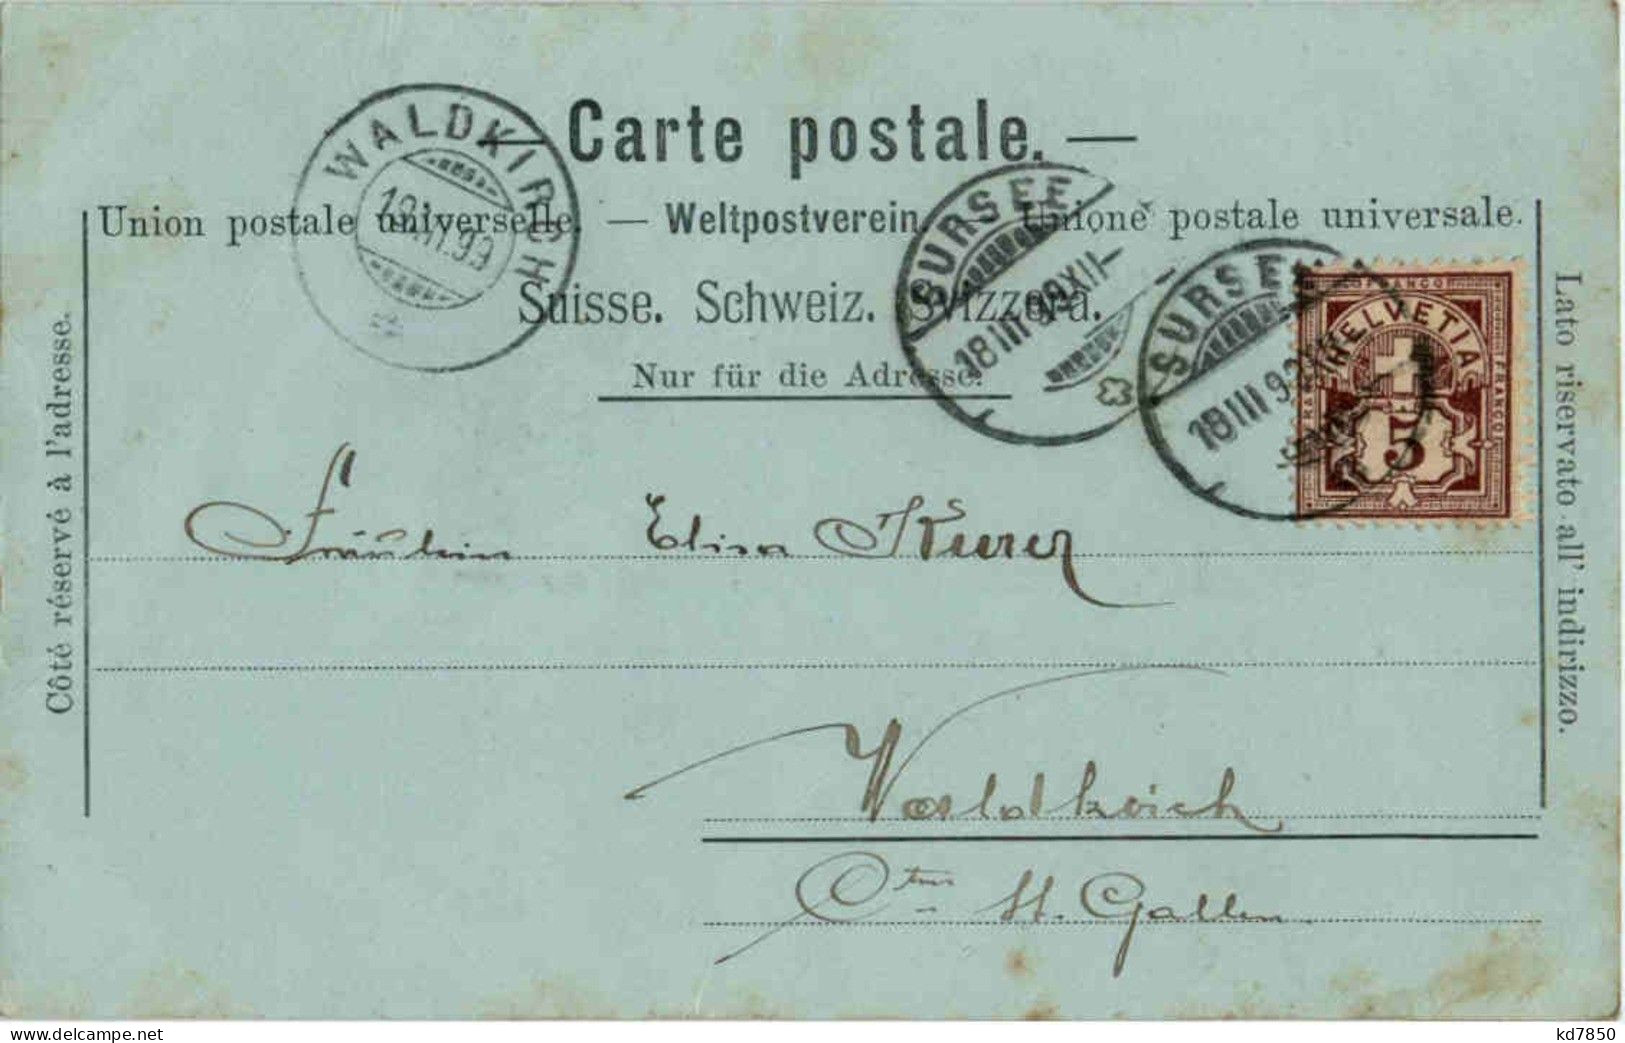 — Carte postale. —
Union postale universelle. — Weltpostverein. — Unione postale universale.
Suisse. Schweiz. Svizzera.
Nur für die Adresse.
WALDKIRCH
SURSEE
18 III 99 XII–
SURSEE
18 III 9
FRANCO
HELVETIA
FRANCO
5
Côté réservé à l'adresse.
Lato riservato all' indirizzo.
Fräulein Elisa
Waldkirch
Ctn St. Gallen
www.delcampe.net
kd7850